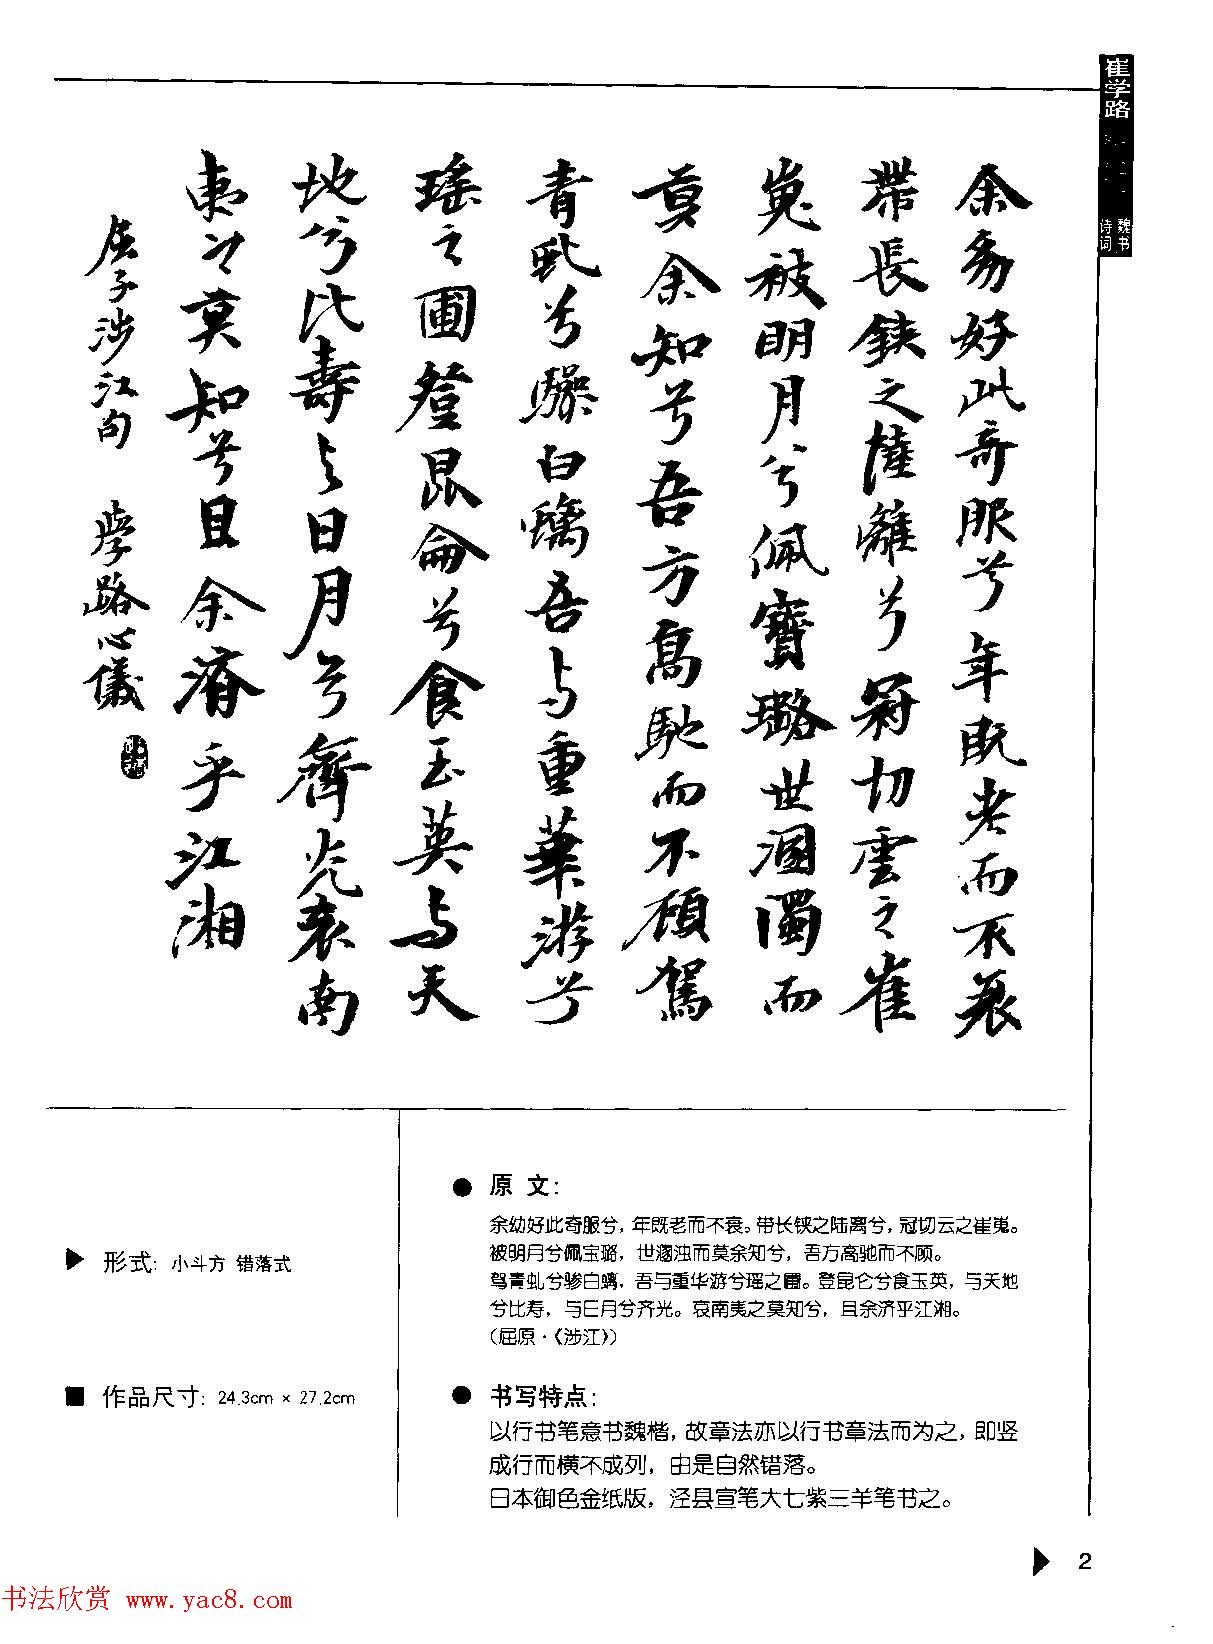 崔学路
魏书
诗词
余幼好此奇服兮年既老而不衰
帶長鋏之陸離兮冠切雲之崔
嵬被明月兮佩寶璐世溷濁而
莫余知兮吾方高馳而不顧駕
青虬兮驂白螭吾与重華游兮
瑤之圃登昆侖兮食玉英与天
地兮比壽与日月兮齊光哀南
夷之莫知兮旦余濟乎江湘
屈子涉江句 學路心儀
形式: 小斗方 错落式
作品尺寸: 24.3cm × 27.2cm
原 文:
余幼好此奇服兮，年既老而不衰。带长铗之陆离兮，冠切云之崔嵬。
被明月兮佩宝璐，世溷浊而莫余知兮，吾方高驰而不顾。
驾青虬兮骖白螭，吾与重华游兮瑶之圃。登昆仑兮食玉英，与天地
兮比寿，与日月兮齐光。哀南夷之莫知兮，旦余济乎江湘。
(屈原·《涉江》)
书写特点:
以行书笔意书魏楷，故章法亦以行书章法而为之，即竖
成行而横不成列，由是自然错落。
日本御色金纸版，泾县宣笔大七紫三羊笔书之。
2
书法欣赏 www.yac8.com